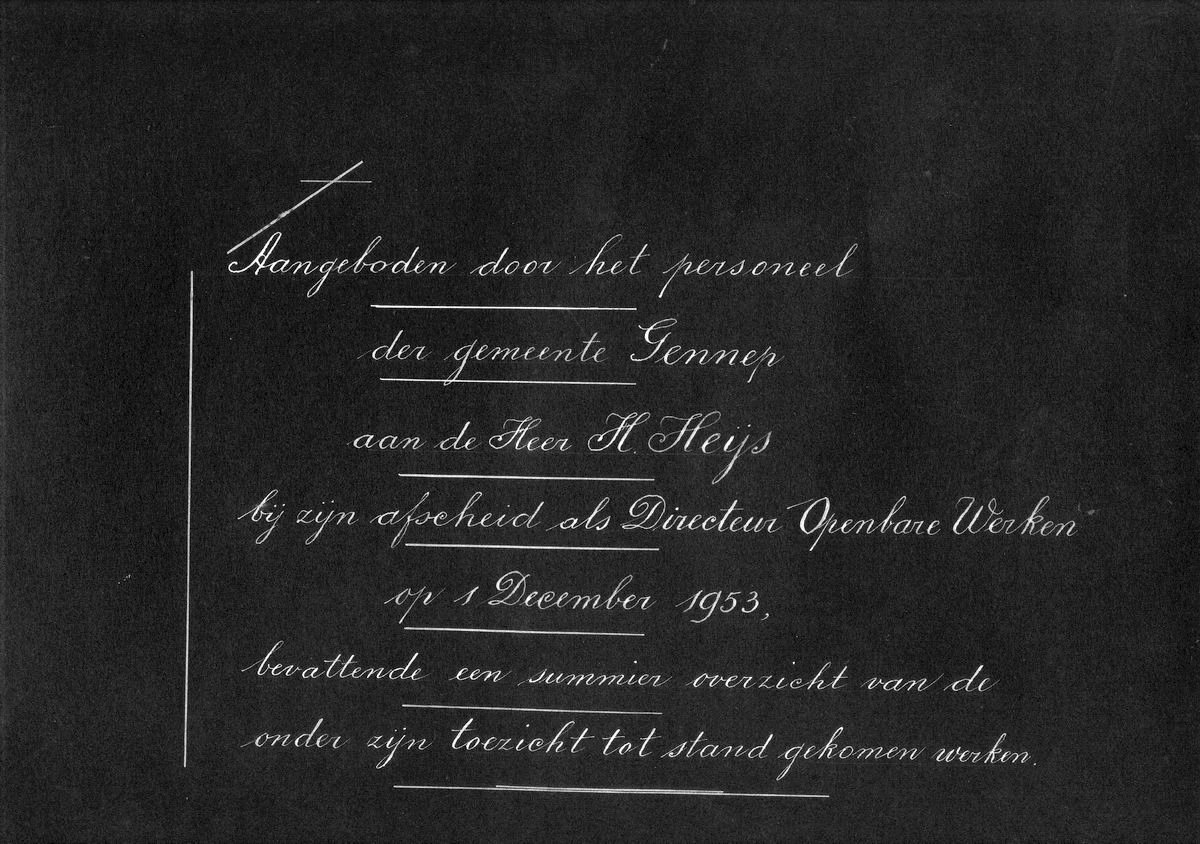 Aangeboden door het personeel
der gemeente Gennep
aan de Heer H. Heijs
bij zijn afscheid als Directeur Openbare Werken
op 1 December 1953,
bevattende een summier overzicht van de
onder zijn toezicht tot stand gekomen werken.